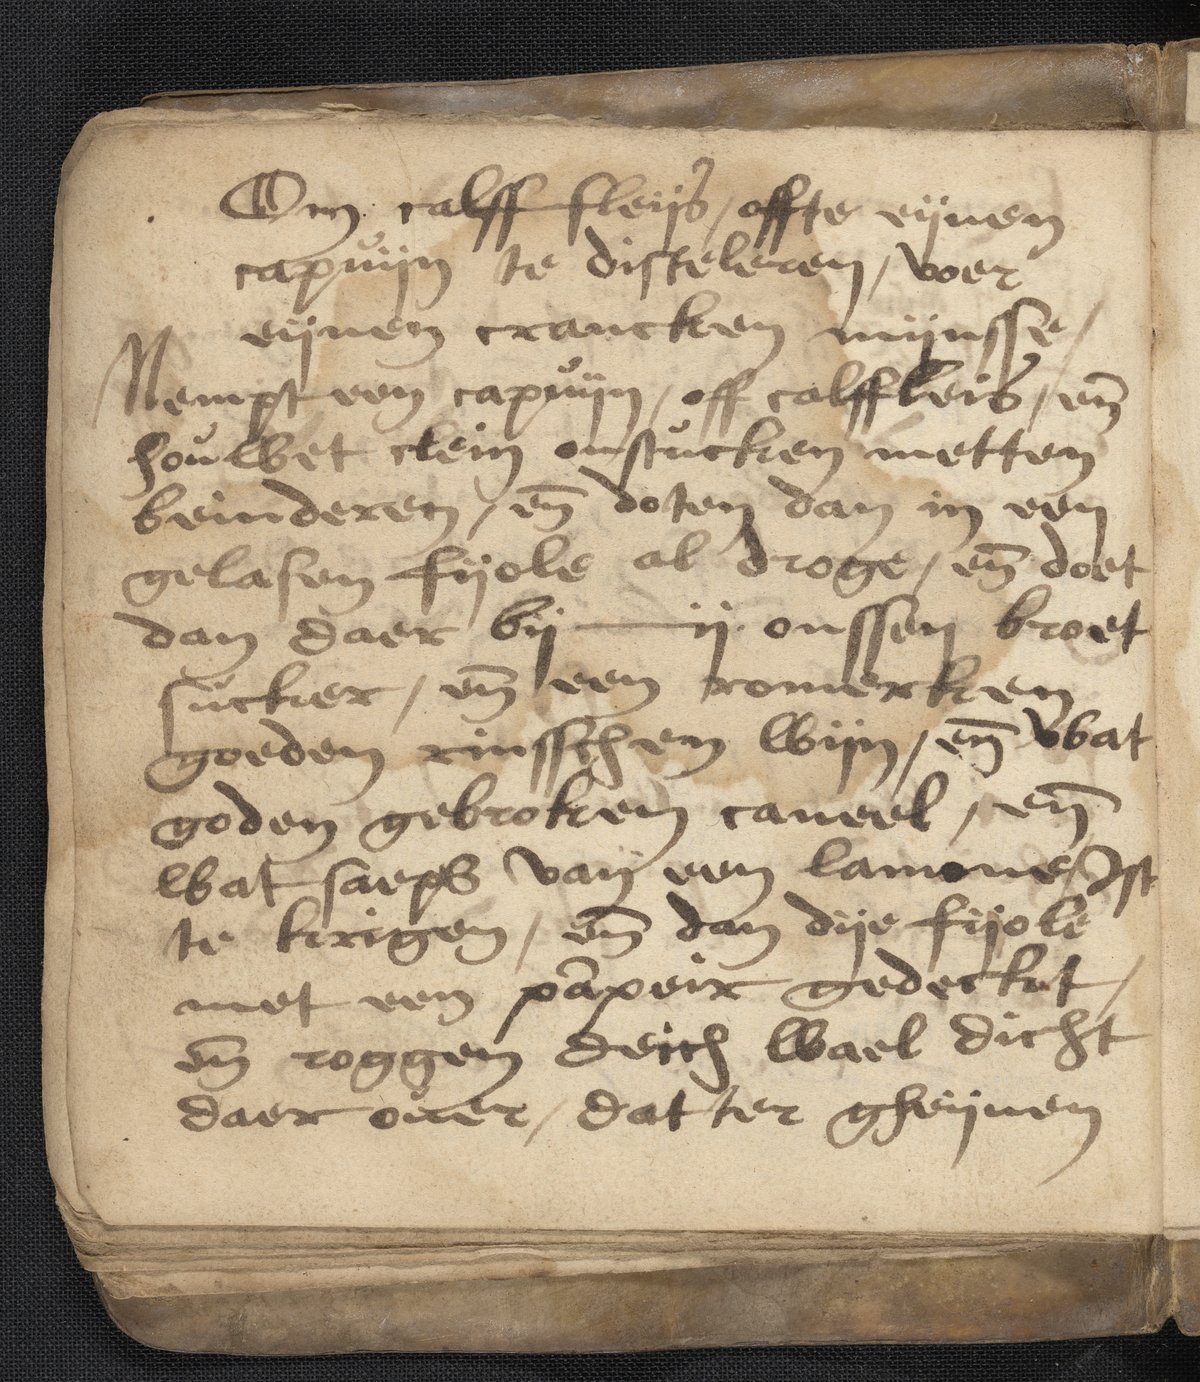 Om calff fleijs / offte eijnen
capuijn te disteleren / voer
eijnen crancken mijnsse /
Nempt een capuijn / off calffleis / en̄
houwet clein onstucken metten
beinderen / en̄ doten dan in een
gelasen fijole al droge / en̄ doet
dan daer bij — ij onssen broet
sucker / en̄ een romerken
goeden rinsschen wijn / en̄ wat
goden gebroken caneel / en̄
wat saeps van een lamone / Ist
te krigen / en̄ dan dije fijole
met een pampeir gedecket /
en̄ roggen deich wael dicht
daer over / datter gheijnen